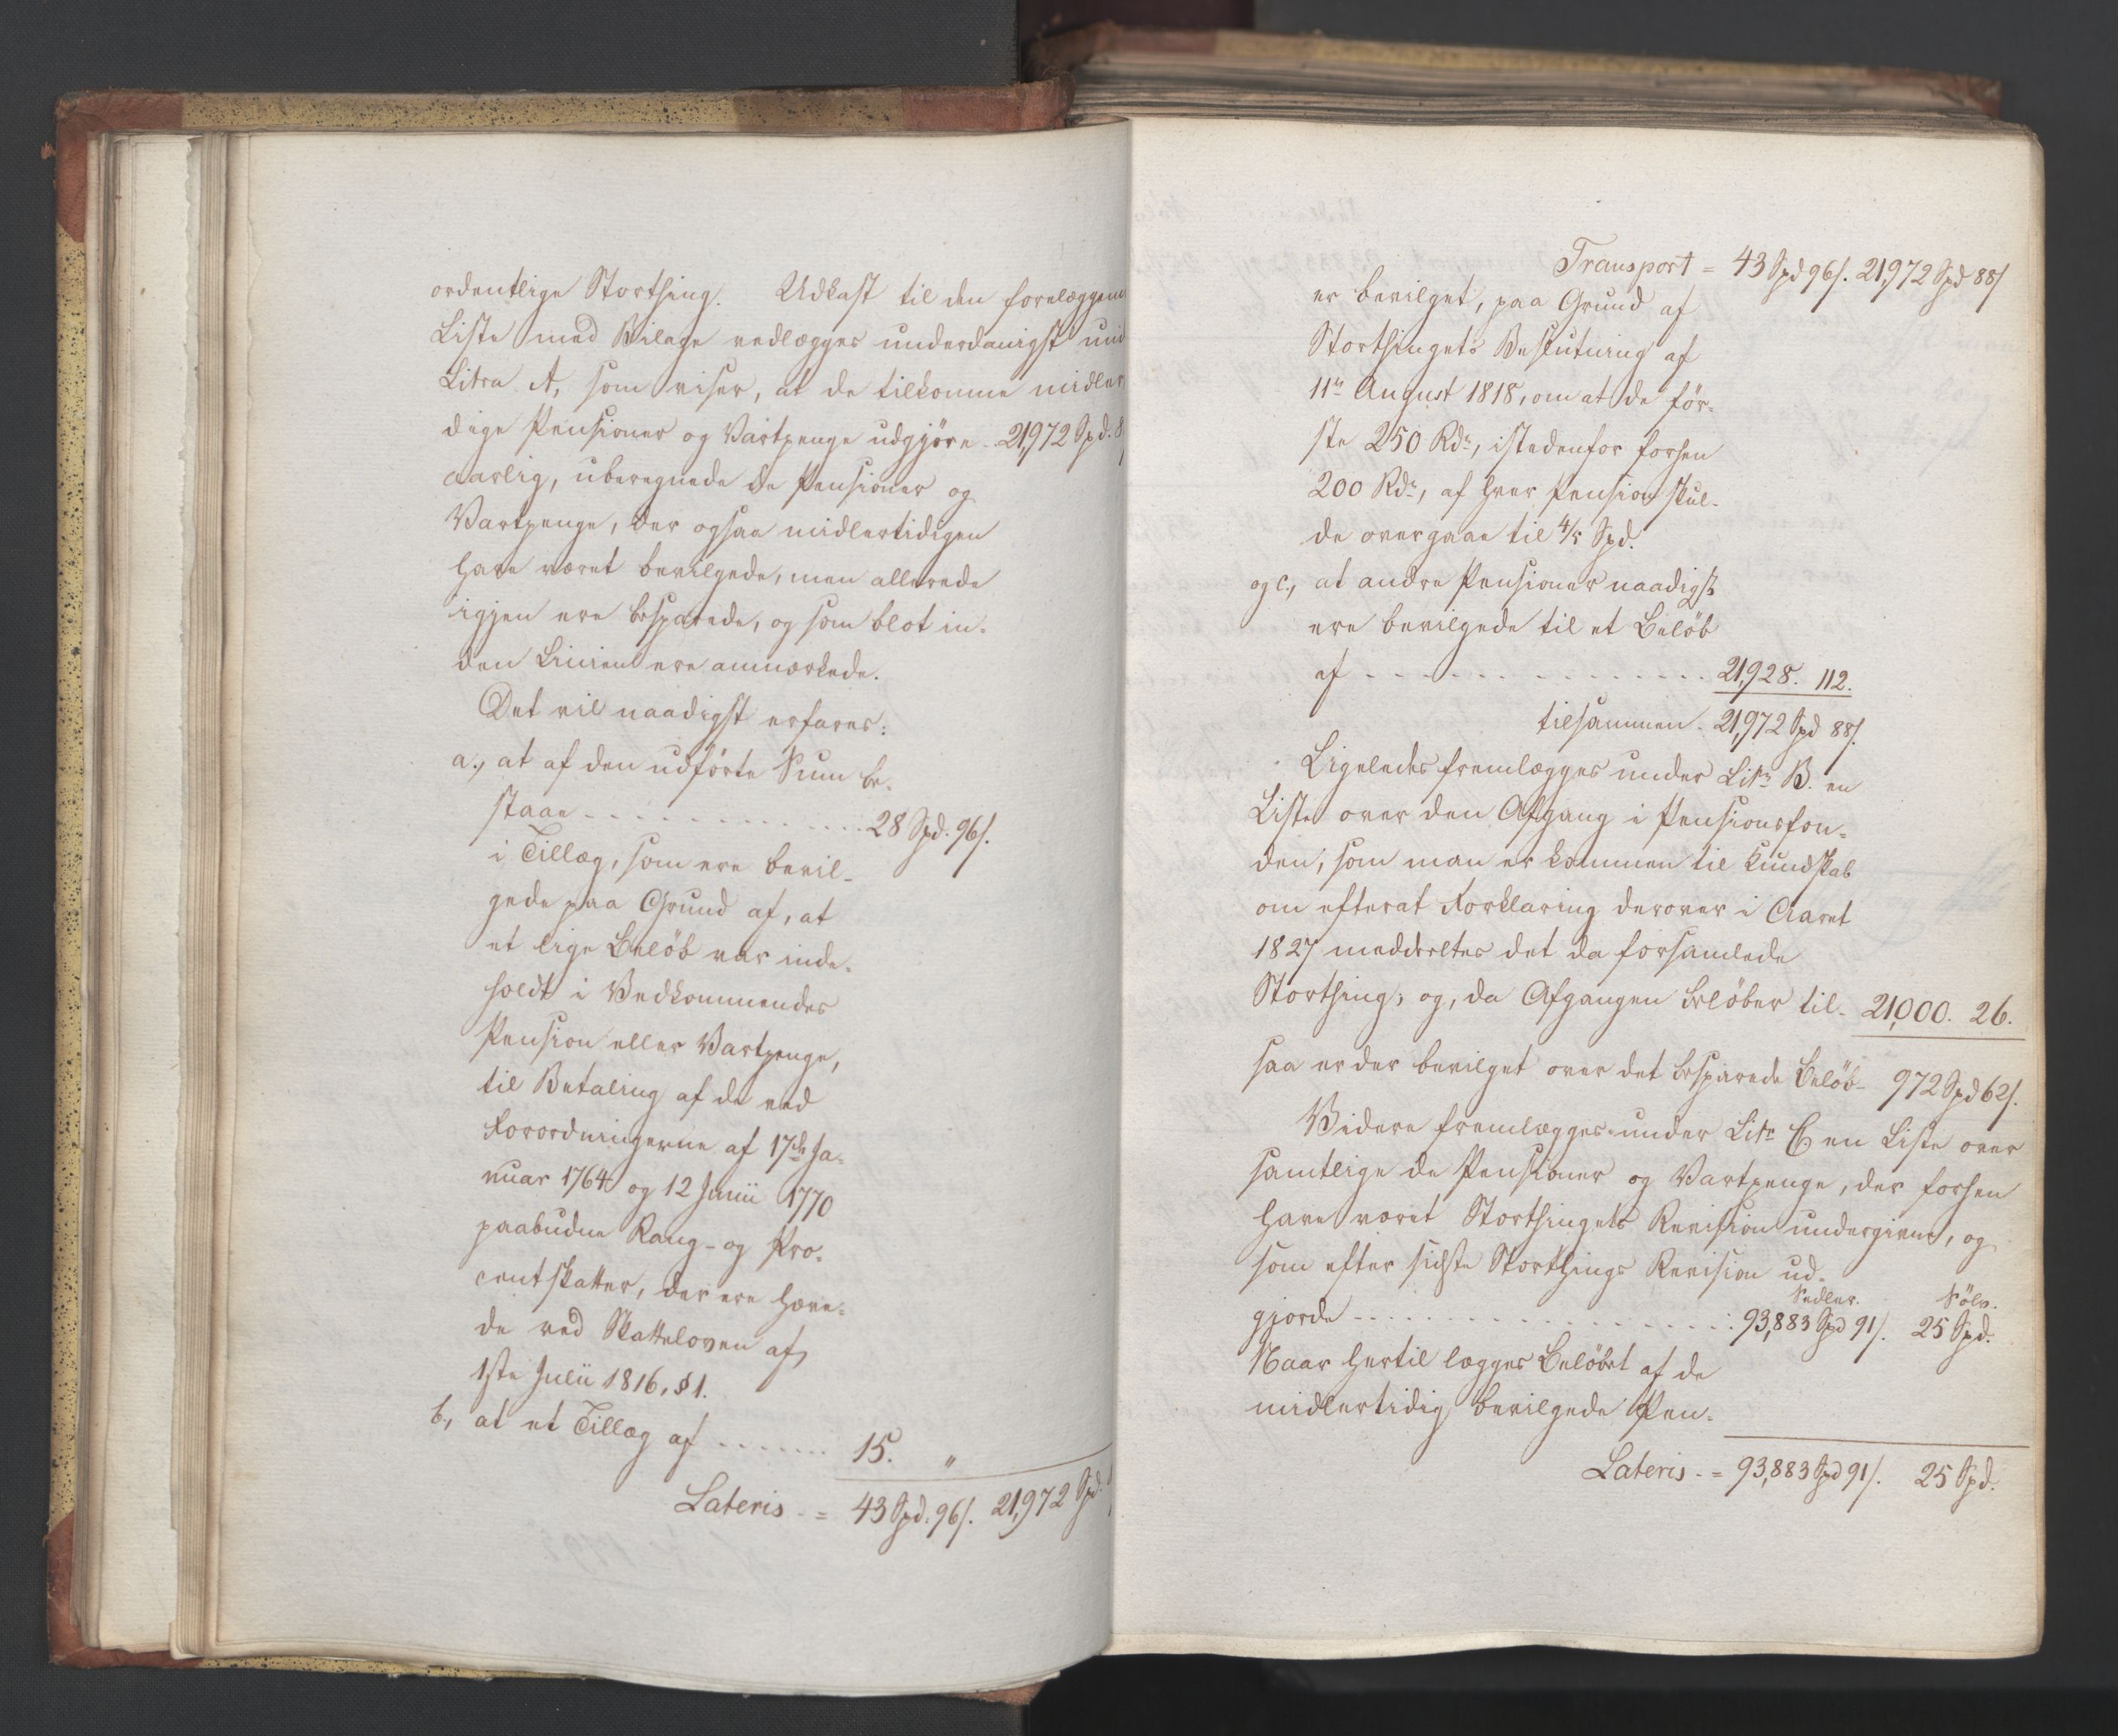 ordentlige Storthing. Udkast til den forelæggende
Liste med Bilage vedlægges underdanigst und
Litra A, som viser, at de tilkomne midler
dige Pensioner og Vartpenge udgjøre . 21,972 Spd. 8
aarlig, uberegnede de Pensioner og
Vartpenge, der ogsaa midlertidigen
have været bevilgede, men allerede
igjen ere besparede, og som blot in-
den Linien ere anmærkede.
Det vil naadigst erfares:
a., at af den udførte Sum be-
staae . . . . . . . . . . . . 28 Spd. 96 s.
i Tillæg, som ere bevil-
gede paa Grund af, at
et lige Beløb var inde-
holdt i Vedkommendes
Pension eller Vartpenge,
til Betaling af de ved
Forordningerne af 17de Ja-
nuar 1764 og 12 Junii 1770
paabudne Rang- og Pro-
centskatter, der ere hæve-
de ved Skatteloven af
1ste Julii 1816, § 1.
b., at et Tillæg af . . . . . . . 15. "
Lateris - = 43 Spd. 96 s. 21,972 Spd.
Transport = 43 Spd 96 s. 21,972 Spd 88 s
er bevilget, paa Grund af
Storthingets Beslutning af
11te August 1818, om at de før-
ste 250 Rdr, istedenfor forhen
200 Rdr, af hver Pension skul-
de overgaae til 4/5 Spd.
og c., at andre Pensioner naadigst
ere bevilgede til et Beløb
af . . . . . . . . . . . . . . . 21,928. 112.
tilsammen . 21,972 Spd 88 s.
Ligeledes fremlægges under Litr B. en
Liste over den Afgang i Pensionsfon-
den, som man er kommen til Kundskab
om efterat Forklaring derover i Aaret
1827 meddeeltes det da forsamlede
Storthing; og, da Afgangen beløber til - 21,000. 26.
saa er der bevilget over det besparede Beløb - 972 Spd 62 s.
Videre fremlægges under Litr C en Liste over
samtlige de Pensioner og Vartpenge, der forhen
have været Storthingets Revision undergivne, og
som efter sidste Storthings Revision ud-
Sedler. Sølv.
gjorde . . . . . . . . . . . . . . . . 93,883 Spd 91 s. 25 Spd.
Naar hertil lægges Beløbet af de
midlertidig bevilgede Pen-
Lateris - = 93,883 Spd 91 s. 25 Spd.